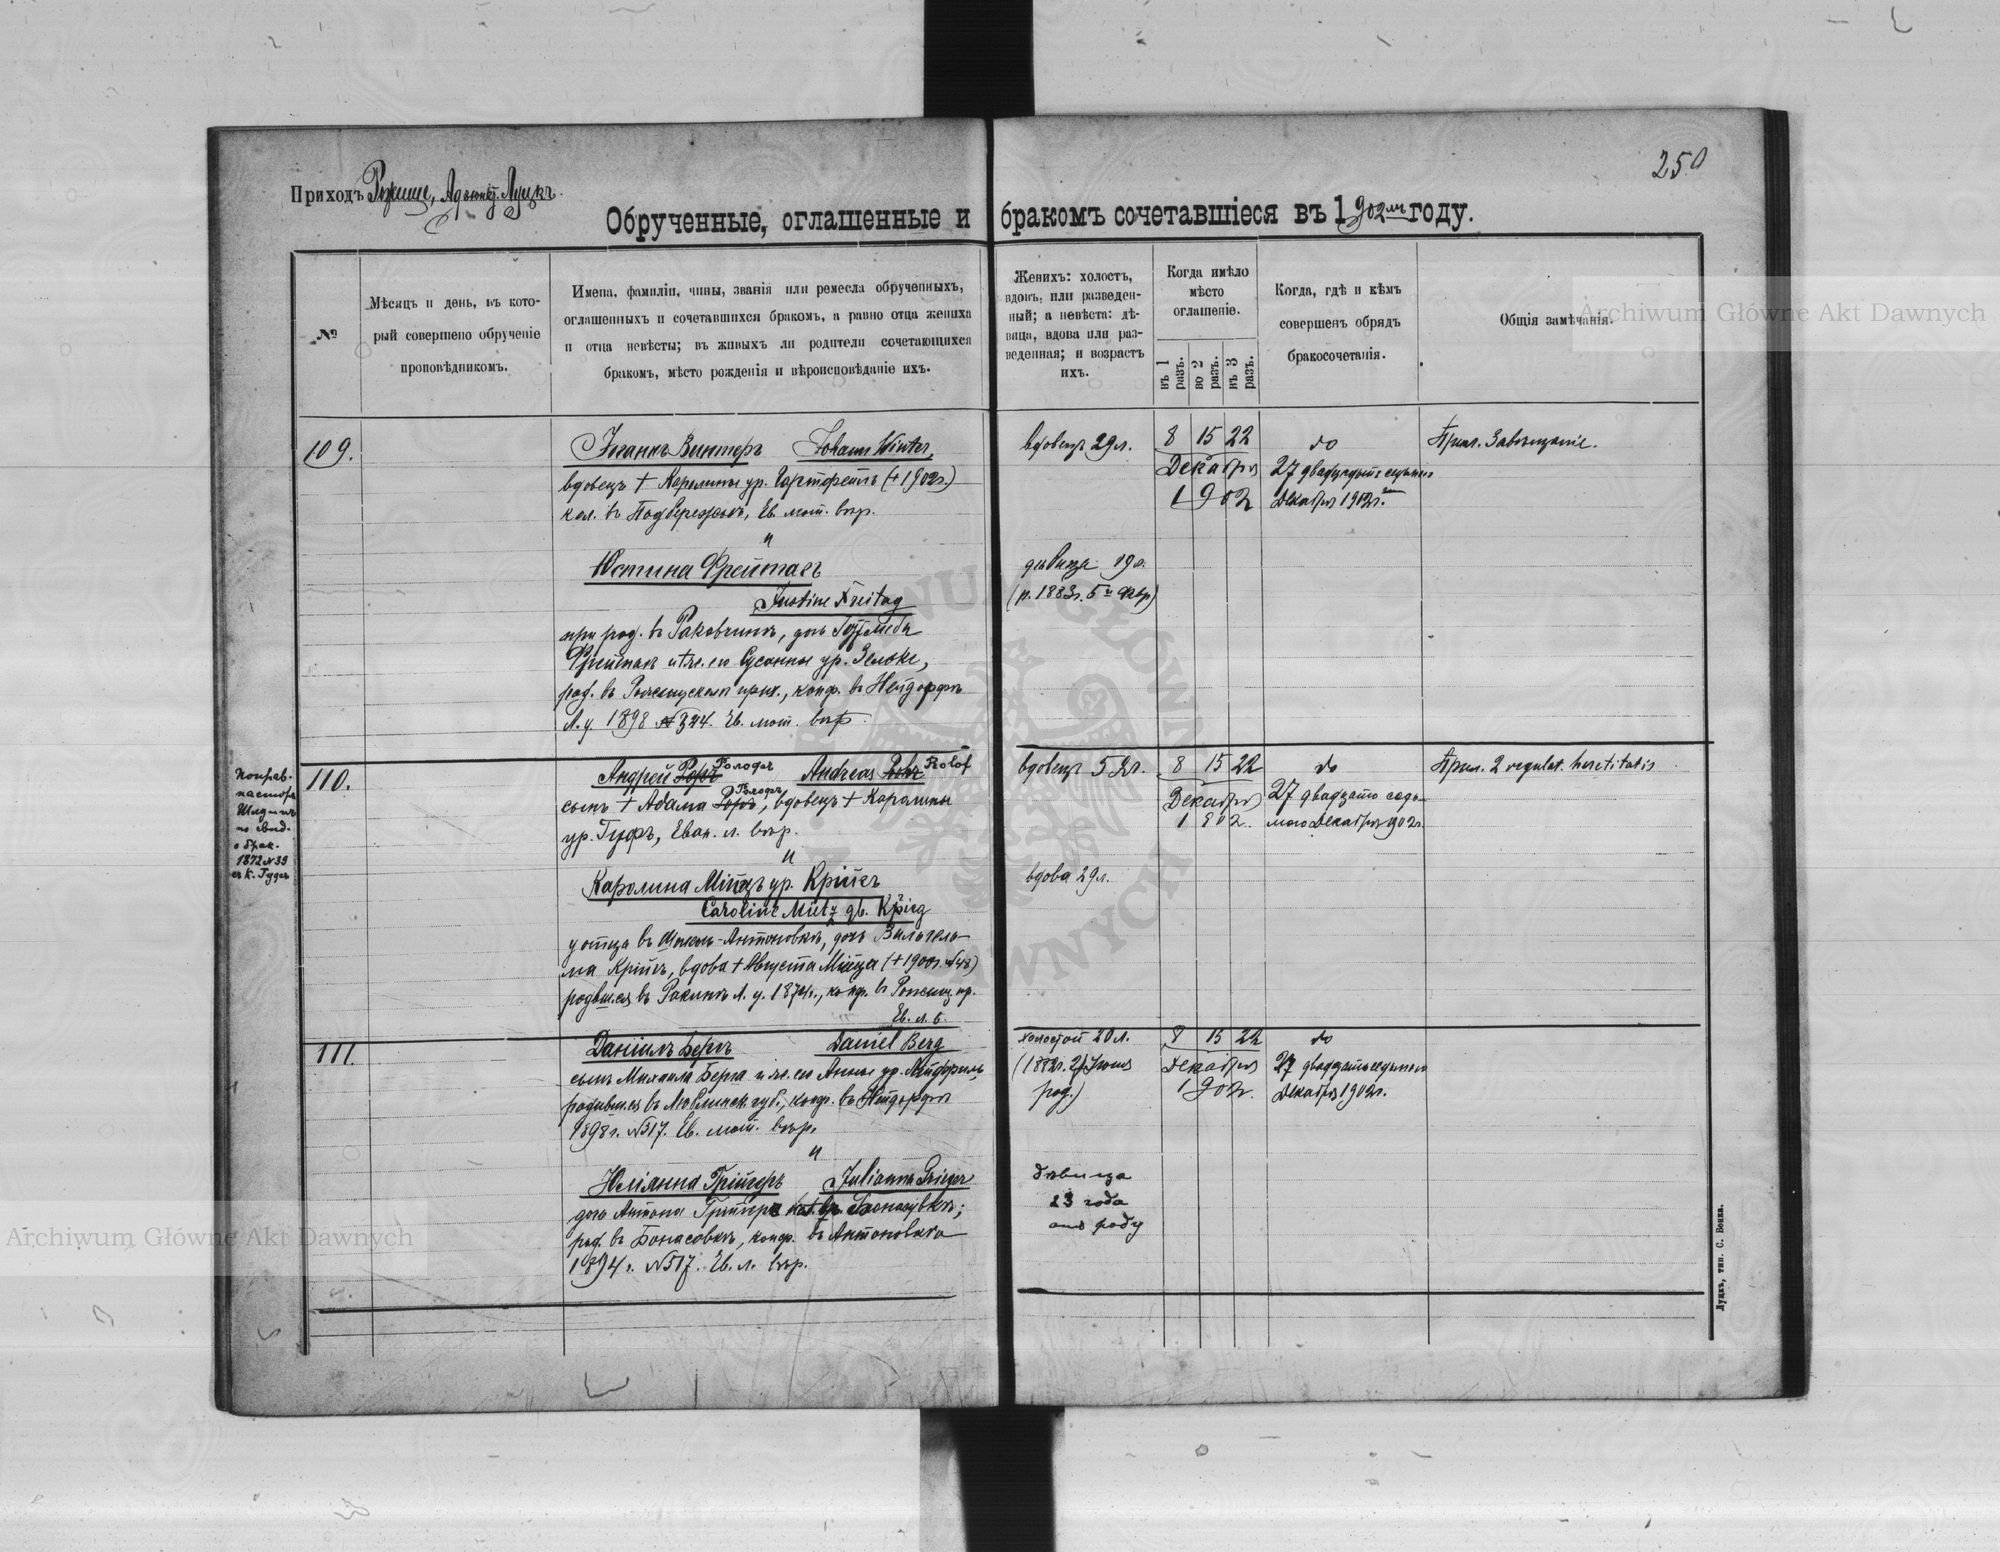 250
Приходъ Рожище, Адъюнкт. Луцкъ.
Обрученные, оглашенные и бракомъ сочетавшіеся въ 1902 году.
№
Мѣсяцъ и день, въ кото-
рый совершено обрученіе
проповѣдникомъ.
Имена, фамиліи, чины, званія или ремесла обрученныхъ,
оглашенныхъ и сочетавшихся бракомъ, а равно отца жениха
и отца невѣсты; въ живыхъ ли родители сочетающихся
бракомъ, мѣсто рожденія и вѣроисповѣданіе ихъ.
Женихъ: холостъ,
вдовъ, или разведен-
ный; а невѣста: дѣ-
вица, вдова или раз-
веденная; и возрастъ
ихъ.
Когда имѣло
мѣсто
оглашеніе.
въ 1 разъ.
во 2 разъ.
въ 3 разъ.
Когда, гдѣ и кѣмъ
совершенъ обрядъ
бракосочетанія.
Общія замѣчанія.
Archiwum Główne Akt Dawnych
109.
Іоганъ Винтеръ Johann Winter,
вдовецъ † Каролины ур. (+1902г.)
кол. въ Подбережьѣ, Ев. лют. вѣр.
и
Юстина Фрейтагъ
Justine Freitag
при род. въ Раковчинѣ, дочь Готлиба
Фрейтагъ и же. его Сусанны ур. Зельке,
род. въ Рожищскомъ прих., конф. въ Нейдорфѣ
1898 №324. Ев. лют. вѣр.
вдовецъ 29л.
дѣвица 19л.
(р. 1883г. 5го Февр)
8 15 22
Декабря
1902
до
27 двадцать седьмого
Декабря 1902г.
Прил. Завѣщаніе.
110.
Поправ.
пастора
по свид.
о брак.
1872 №39
Андрей Рорь Ролофъ Andreas Rohr Rolof
сынъ † Адама Рорь Ролофъ, вдовецъ † Каролины
ур. Гуфъ, Еван. л. вѣр.
и
Каролина Мицъ ур. Крігъ
Caroline Mietz gb. Krieg
у отца въ Антоновкѣ, дочь Вильгель-
ма Крігъ, вдова † Августа Мица (+1900г. №48)
родвш.ся въ конф. въ Рожищ. пр.
Ев. л. в.
вдовецъ 52г.
вдова 29л.
8 15 22
Декабря
1902.
до
27 двадцать седь-
мого Декабря 1902г.
Прил. 2 regulat. hereditatis
111.
Даніилъ Бергъ Daniel Berg
сынъ Михаила Берга и же. его Анны ур.
родивш.ся въ Люблинск. губ., конф. въ Нейдорфѣ
1898г. №317. Ев. лют. вѣр.
и
Юліанна Грігеръ Julianna Krieger
дочь Антона
род. въ Бонасовкѣ, конф. въ Антоновкѣ
1894г. №517. Ев. л. вѣр.
холостой 20 л.
(1882г. Іюня
род.)
дѣвица
23 года
отъ роду
8 15 22
Декабря
1902.
до
27 двадцать седьмого
Декабря 1902г.
Луцкъ, тип. С. Бонка.
Archiwum Główne Akt Dawnych